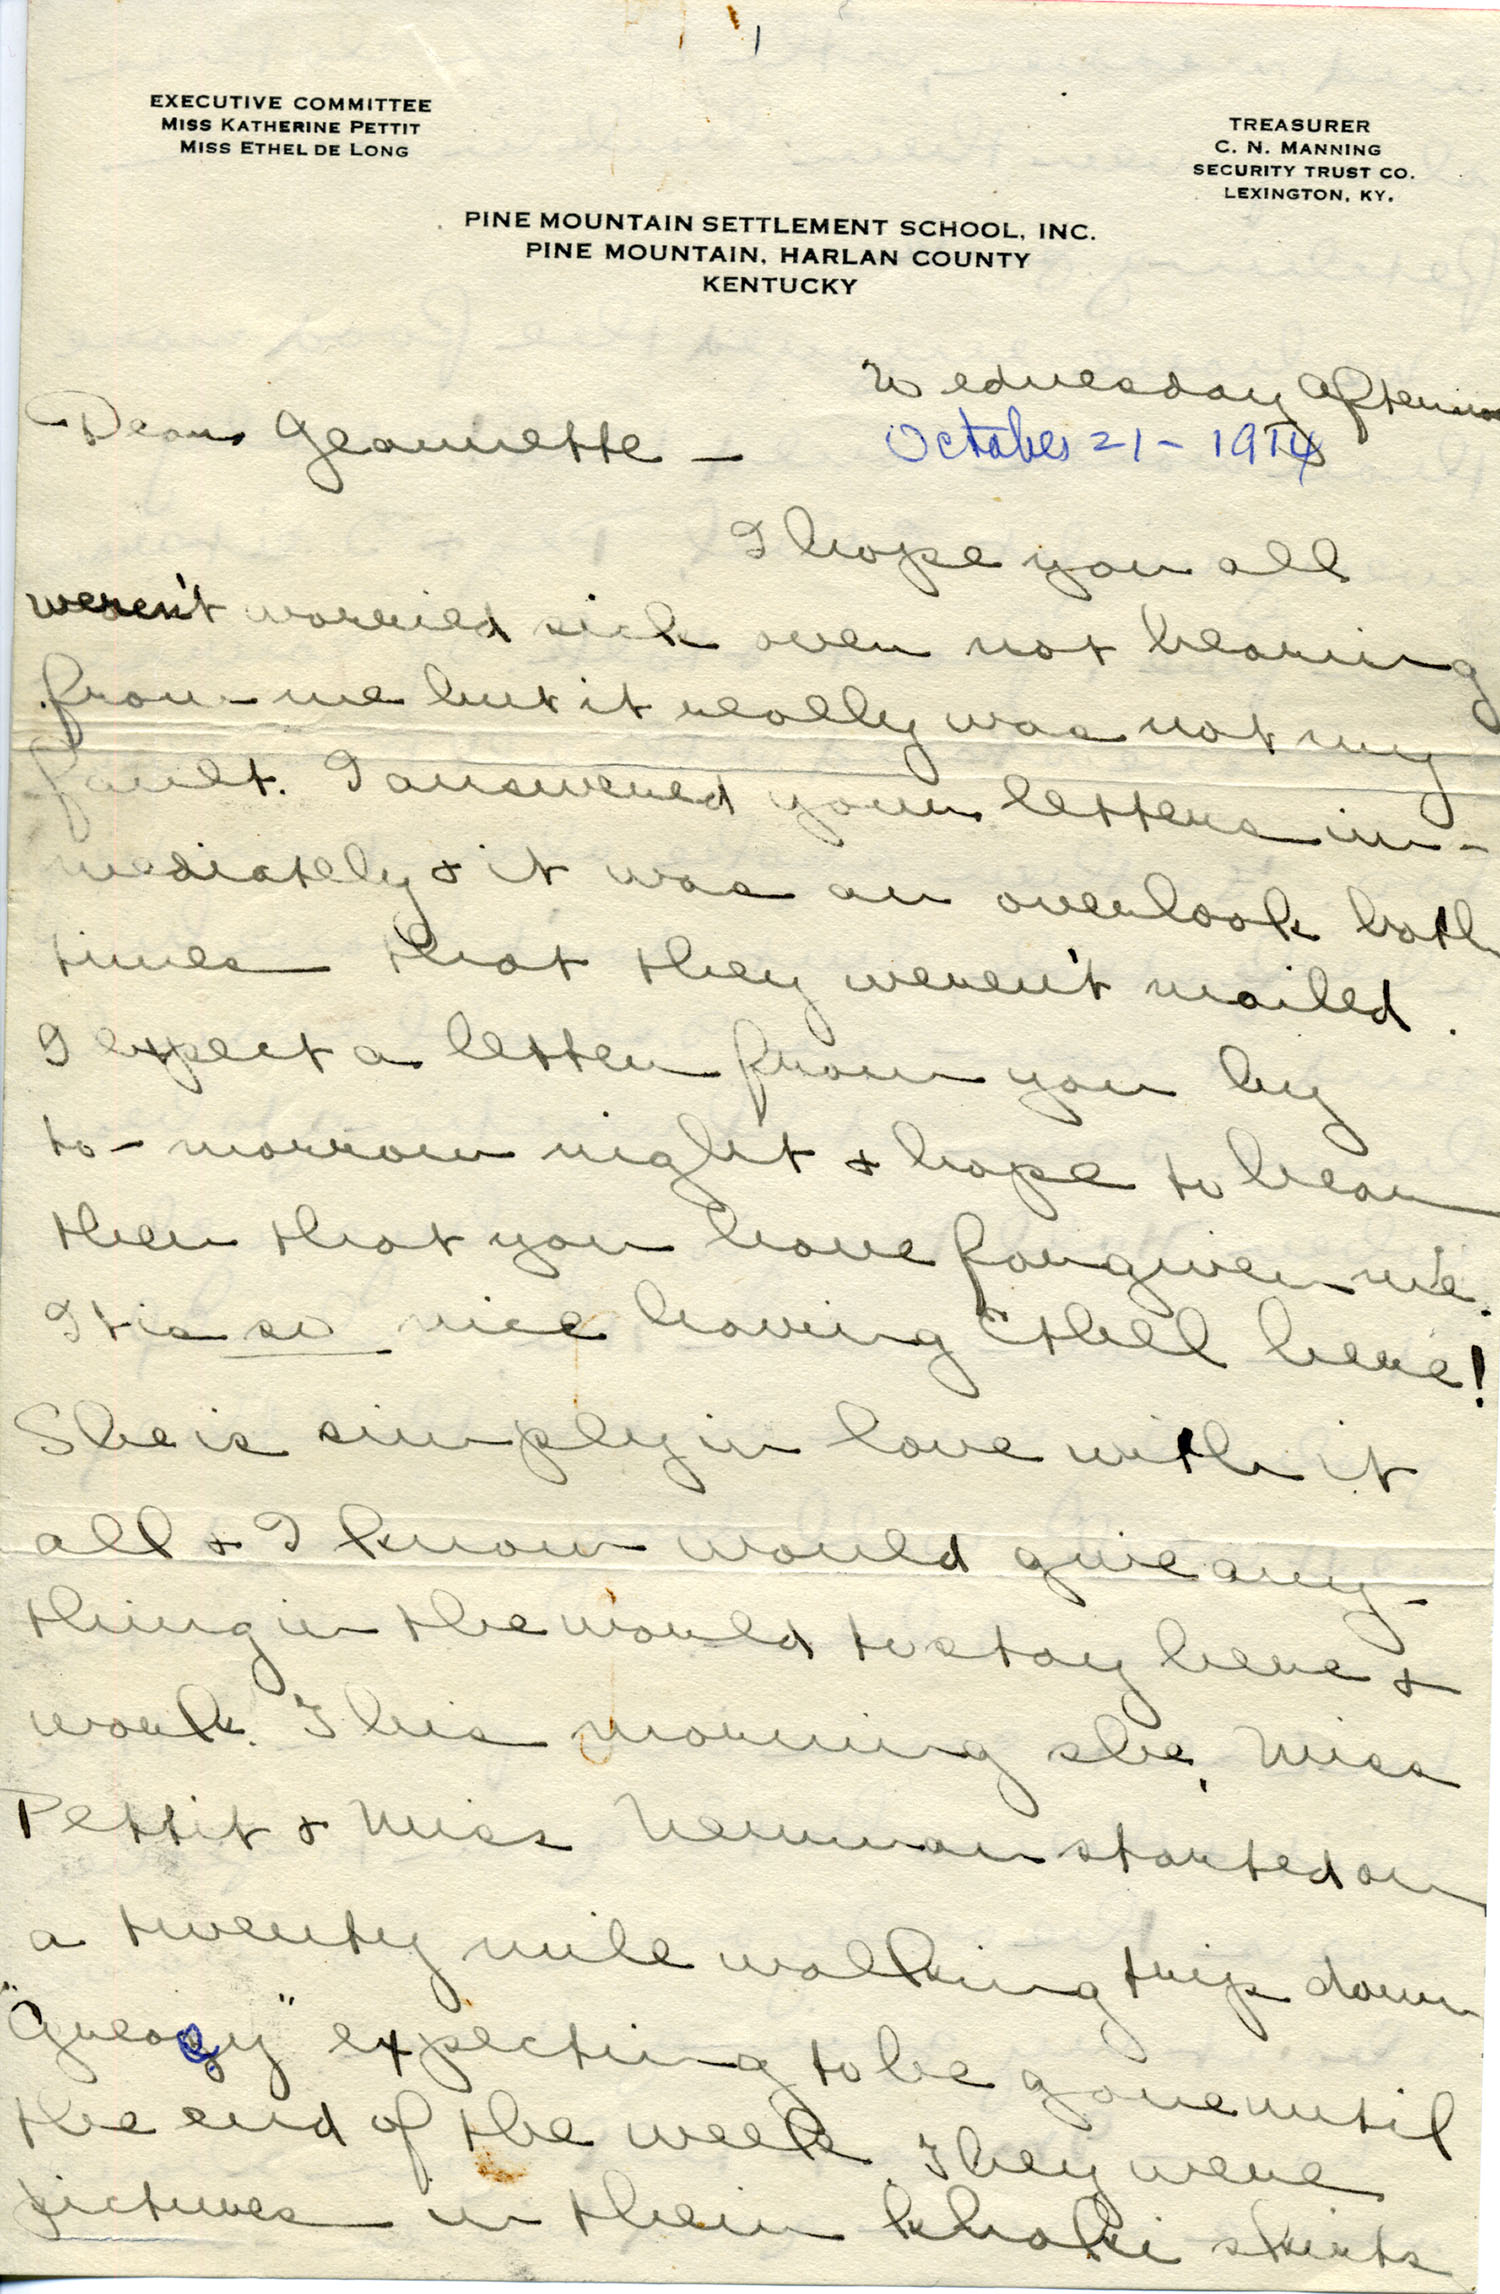 EXECUTIVE COMMITTEE
MISS KATHERINE PETTIT
MISS ETHEL DE LONG
TREASURER
C. N. MANNING
SECURITY TRUST CO.
LEXINGTON, KY.
PINE MOUNTAIN SETTLEMENT SCHOOL, INC.
PINE MOUNTAIN, HARLAN COUNTY
KENTUCKY
Wednesday afternoon
October 21 - 1914
Dear Geannette -
I hope you all
weren't worried sick over not hearing
from me but it really was not my
fault. I answered your letters im-
mediately & it was an overlook both
times that they weren't mailed.
I expect a letter from you by
to-morrow night & hope to hear
then that you have forgiven me.
It is so nice having Ethel here!
She is simply in love with it
all & I know would give any-
thing in the world to stay here &
work. This morning she, Miss
Pettit & Miss Newman started on
a twenty mile walking trip down
"Greasy" expecting to be gone until
the end of the week. They were
pictures in their khaki skirts